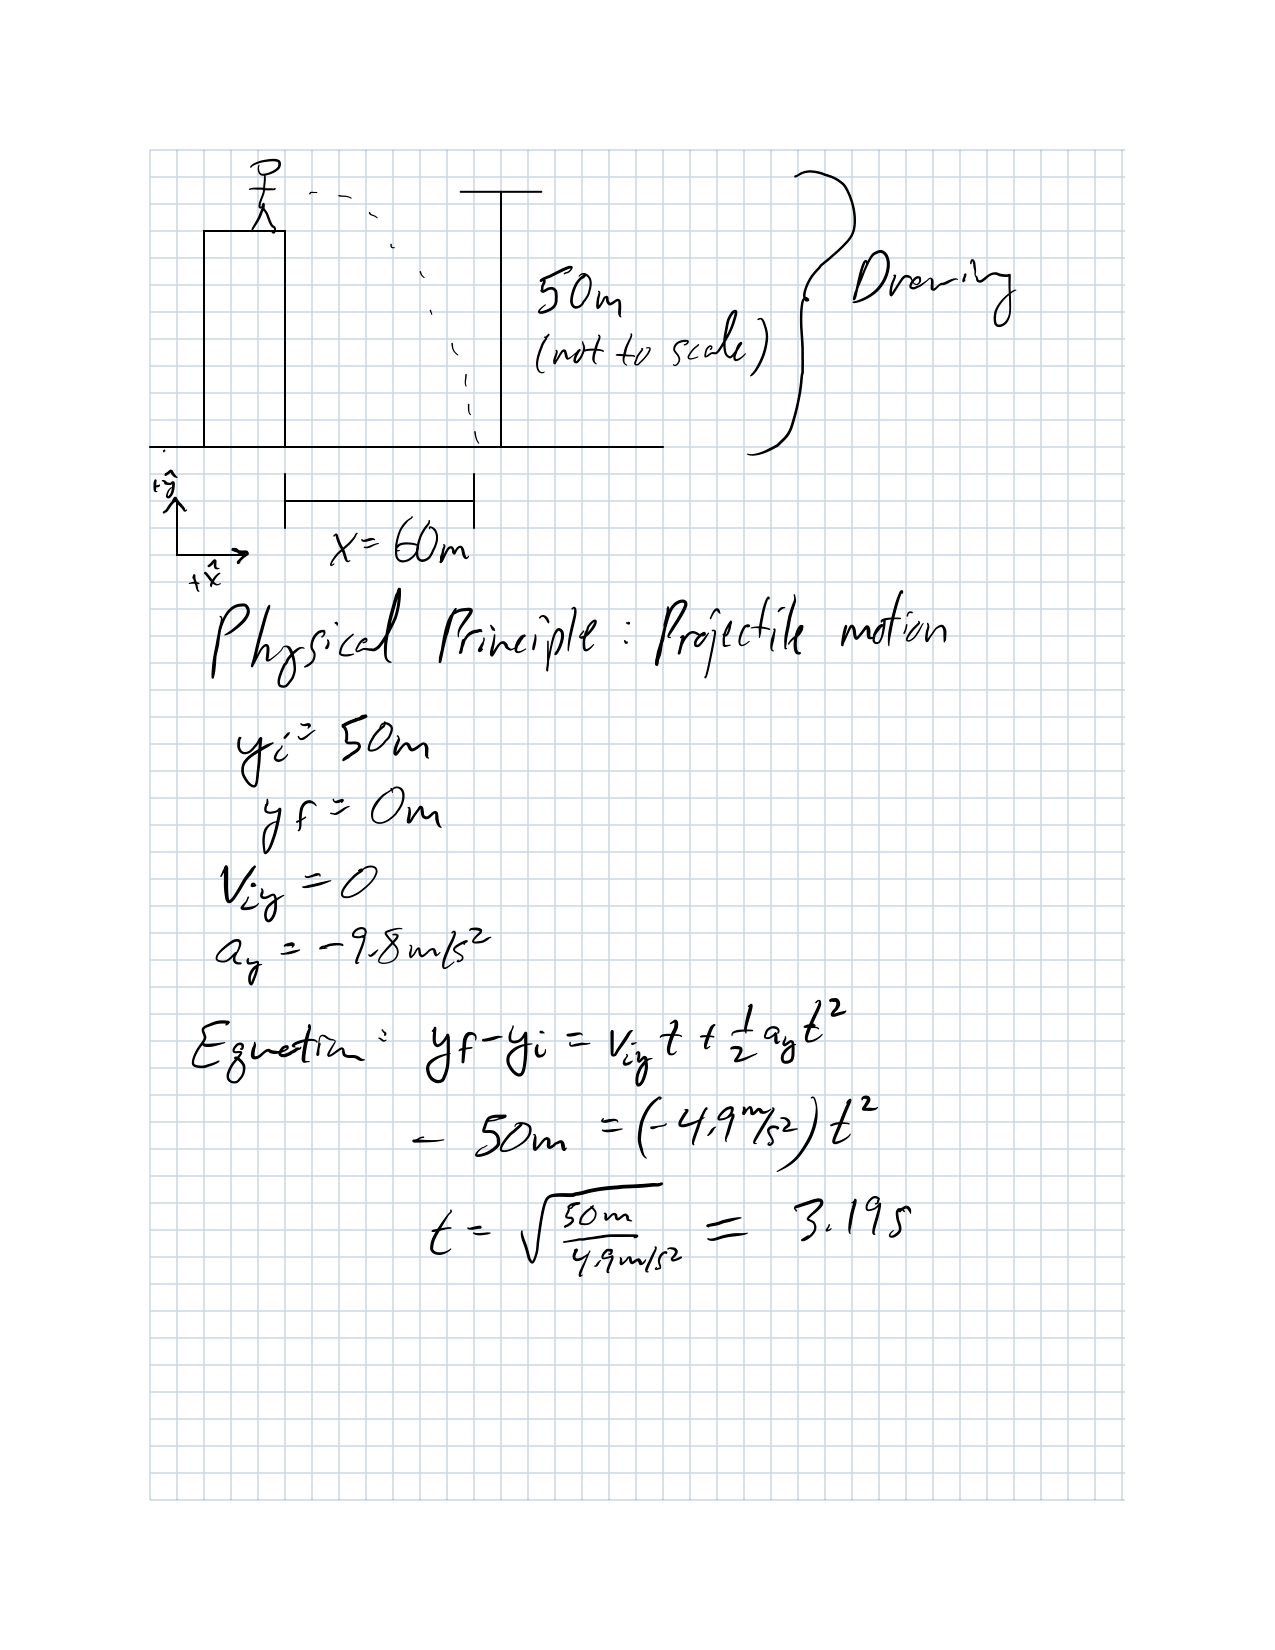 50m
(not to scale)
Drawing
+ŷ
+x̂
x = 60m
Physical Principle : Projectile motion
yi = 50m
yf = 0m
Viy = 0
ay = -9.8m/s²
Equation: yf - yi = Viy t + 1/2 ay t²
- 50m = (-4.9 m/s²) t²
t = √(50m / 4.9m/s²) = 3.19s